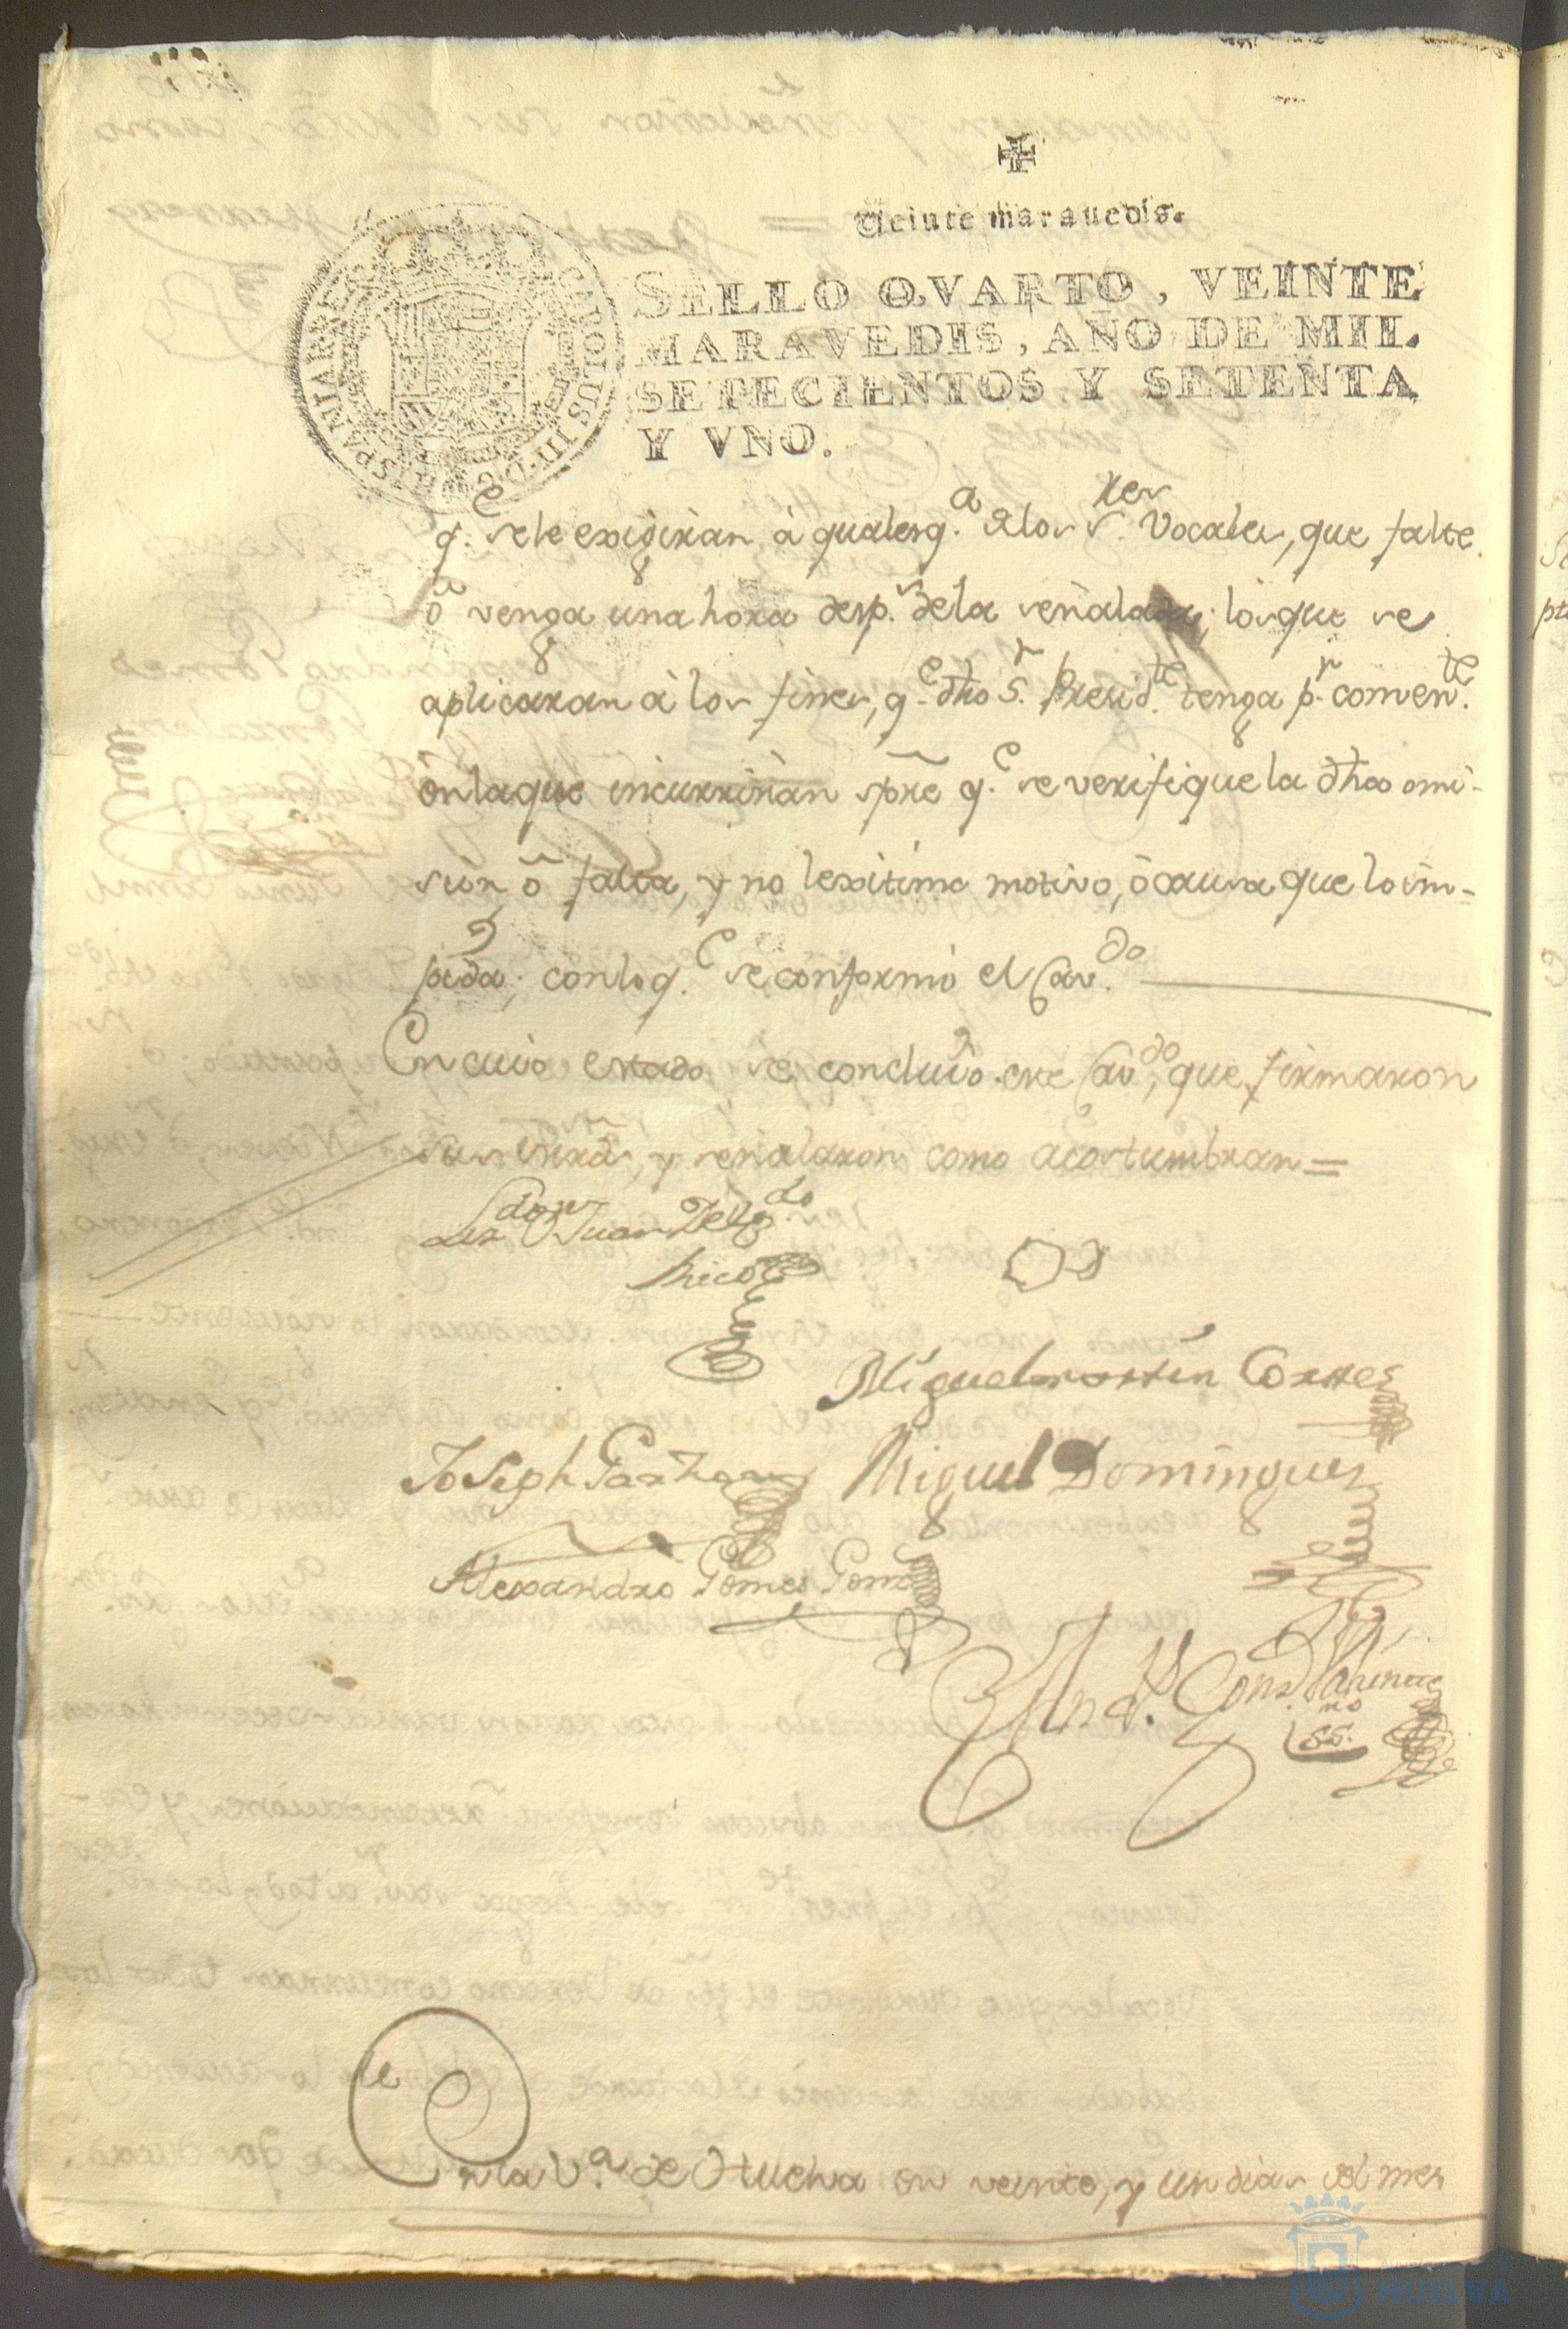 Veinte maravedis.
SELLO QVARTO, VEINTE
MARAVEDIS, AÑO DE MIL
SETECIENTOS Y SETENTA
Y VNO.
q.e se le exigirán à qualesq.a de los S.res Vocales, que falte
ô venga una hora desp.s de la señalada; los que se
aplicaran à los fines, q.e dho S.r Presid.te tenga p.r conven.te
ên la que incurrirán spre q.e se verifique la dha omi-
sion ô falta, y no lexitimo motivo, ô causa que lo im-
pida; con lo q.e se conformó el Cav.do
En cuio estado se concluió este Cav.do, que firmaron
sus mrds, y señalaron como acostumbran =
Liz.do Dn Juan Tello
Rico
Miguel martin Cortes
Joseph Garzon
Miguel Dominguez
Alexandro Gomes
SS.no
En la V.a de Huelva en veinte, y un dias del mes
HUELVA